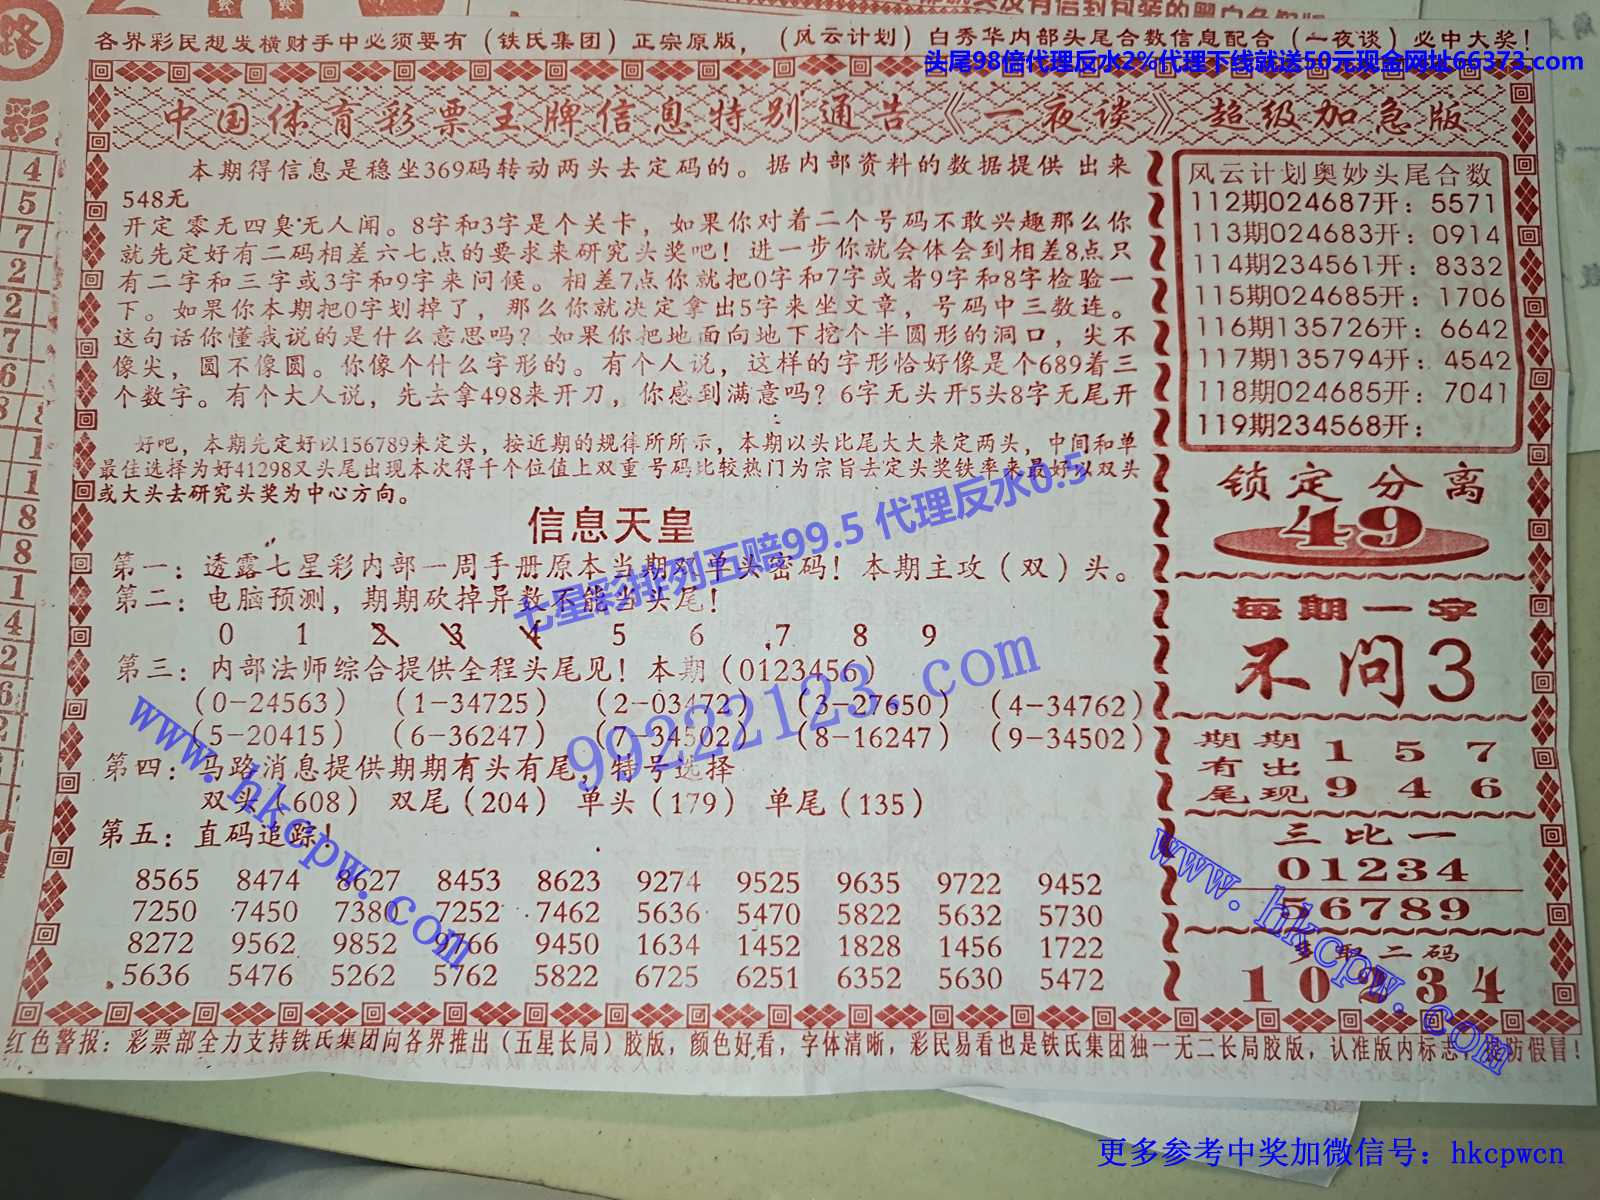 各界彩民想发横财手中必须要有（铁氏集团）正宗原版，（风云计划）白秀华内部头尾合数信息配合（一夜谈）必中大奖！
头尾98倍代理反水2%代理下线就送50元现金网址66373.com
中国体育彩票王牌信息特别通告《一夜谈》超级加急版
本期得信息是稳坐369码转动两头去定码的。据内部资料的数据提供 出来
548无
开定 零无四臭无人闻。8字和3字是个关卡，如果你对着二个号码不敢兴趣那么你
就先定好有二码相差六七点的要求来研究头奖吧！进一步你就会体会到相差8点只
有二字和三字或3字和9字来问候。相差7点你就把0字和7字或者9字和8字检验一
下。如果你本期把0字划掉了，那么你就决定拿出5字来坐文章，号码中三数连。
这句话你懂我说的是什么意思吗？如果你把地面向地下挖个半圆形的洞口，尖不
像尖，圆不像圆。你像个什么字形的。有个人说，这样的字形恰好像是个689着三
个数字。有个大人说，先去拿498来开刀，你感到满意吗？6字无头开5头8字无尾开
好吧，本期先定好以156789来定头，按近期的规律所所示，本期以头比尾大大来定两头，中间和单
最佳选择为好41298又头尾出现本次得千个位值上双重 号码比较热门为宗旨去定头奖铁率来最好以双头
或大头去研究头奖为中心方向。
信息天皇
第一：透露七星彩内部一周手册原本当期双单头密码！本期主攻（双）头。
第二：电脑预测，期期砍掉异数不能当头尾！
0 1 2 3 4 5 6 7 8 9
第三：内部法师综合提供全程头尾见！本期（0123456）
（0-24563） （1-34725） （2-03472） （3-27650） （4-34762）
（5-20415） （6-36247） （7-34502） （8-16247） （9-34502）
第四：马路消息提供期期有头有尾，特号选择
双头（608） 双尾（204） 单头（179） 单尾（135）
第五：直码追踪！
8565 8474 8627 8453 8623 9274 9525 9635 9722 9452
7250 7450 7380 7252 7462 5636 5470 5822 5632 5730
8272 9562 9852 9766 9450 1634 1452 1828 1456 1722
5636 5476 5262 5762 5822 6725 6251 6352 5630 5472
风云计划奥妙头尾合数
112期024687开：5571
113期024683开：0914
114期234561开：8332
115期024685开：1706
116期135726开：6642
117期135794开：4542
118期024685开：7041
119期234568开：
锁定分离
49
每期一字
不问3
期期 1 5 7
有出
尾现 9 4 6
三比一
01234
56789
多取二码
10234
红色警报：彩票部全力支持铁氏集团向各界推出（五星长局）胶版，颜色好看，字体清晰，彩民易看也是铁氏集团独一无二长局胶版，认准版内标志，谨防假冒！
七星彩排列五赔99.5 代理反水0.5
99222123.com
www.hkcpw.com
www.hkcpw.com
更多参考中奖加微信号：hkcpwcn
路
彩
4
5
7
2
2
7
6
8
1
1
8
8
1
4
2
6
2